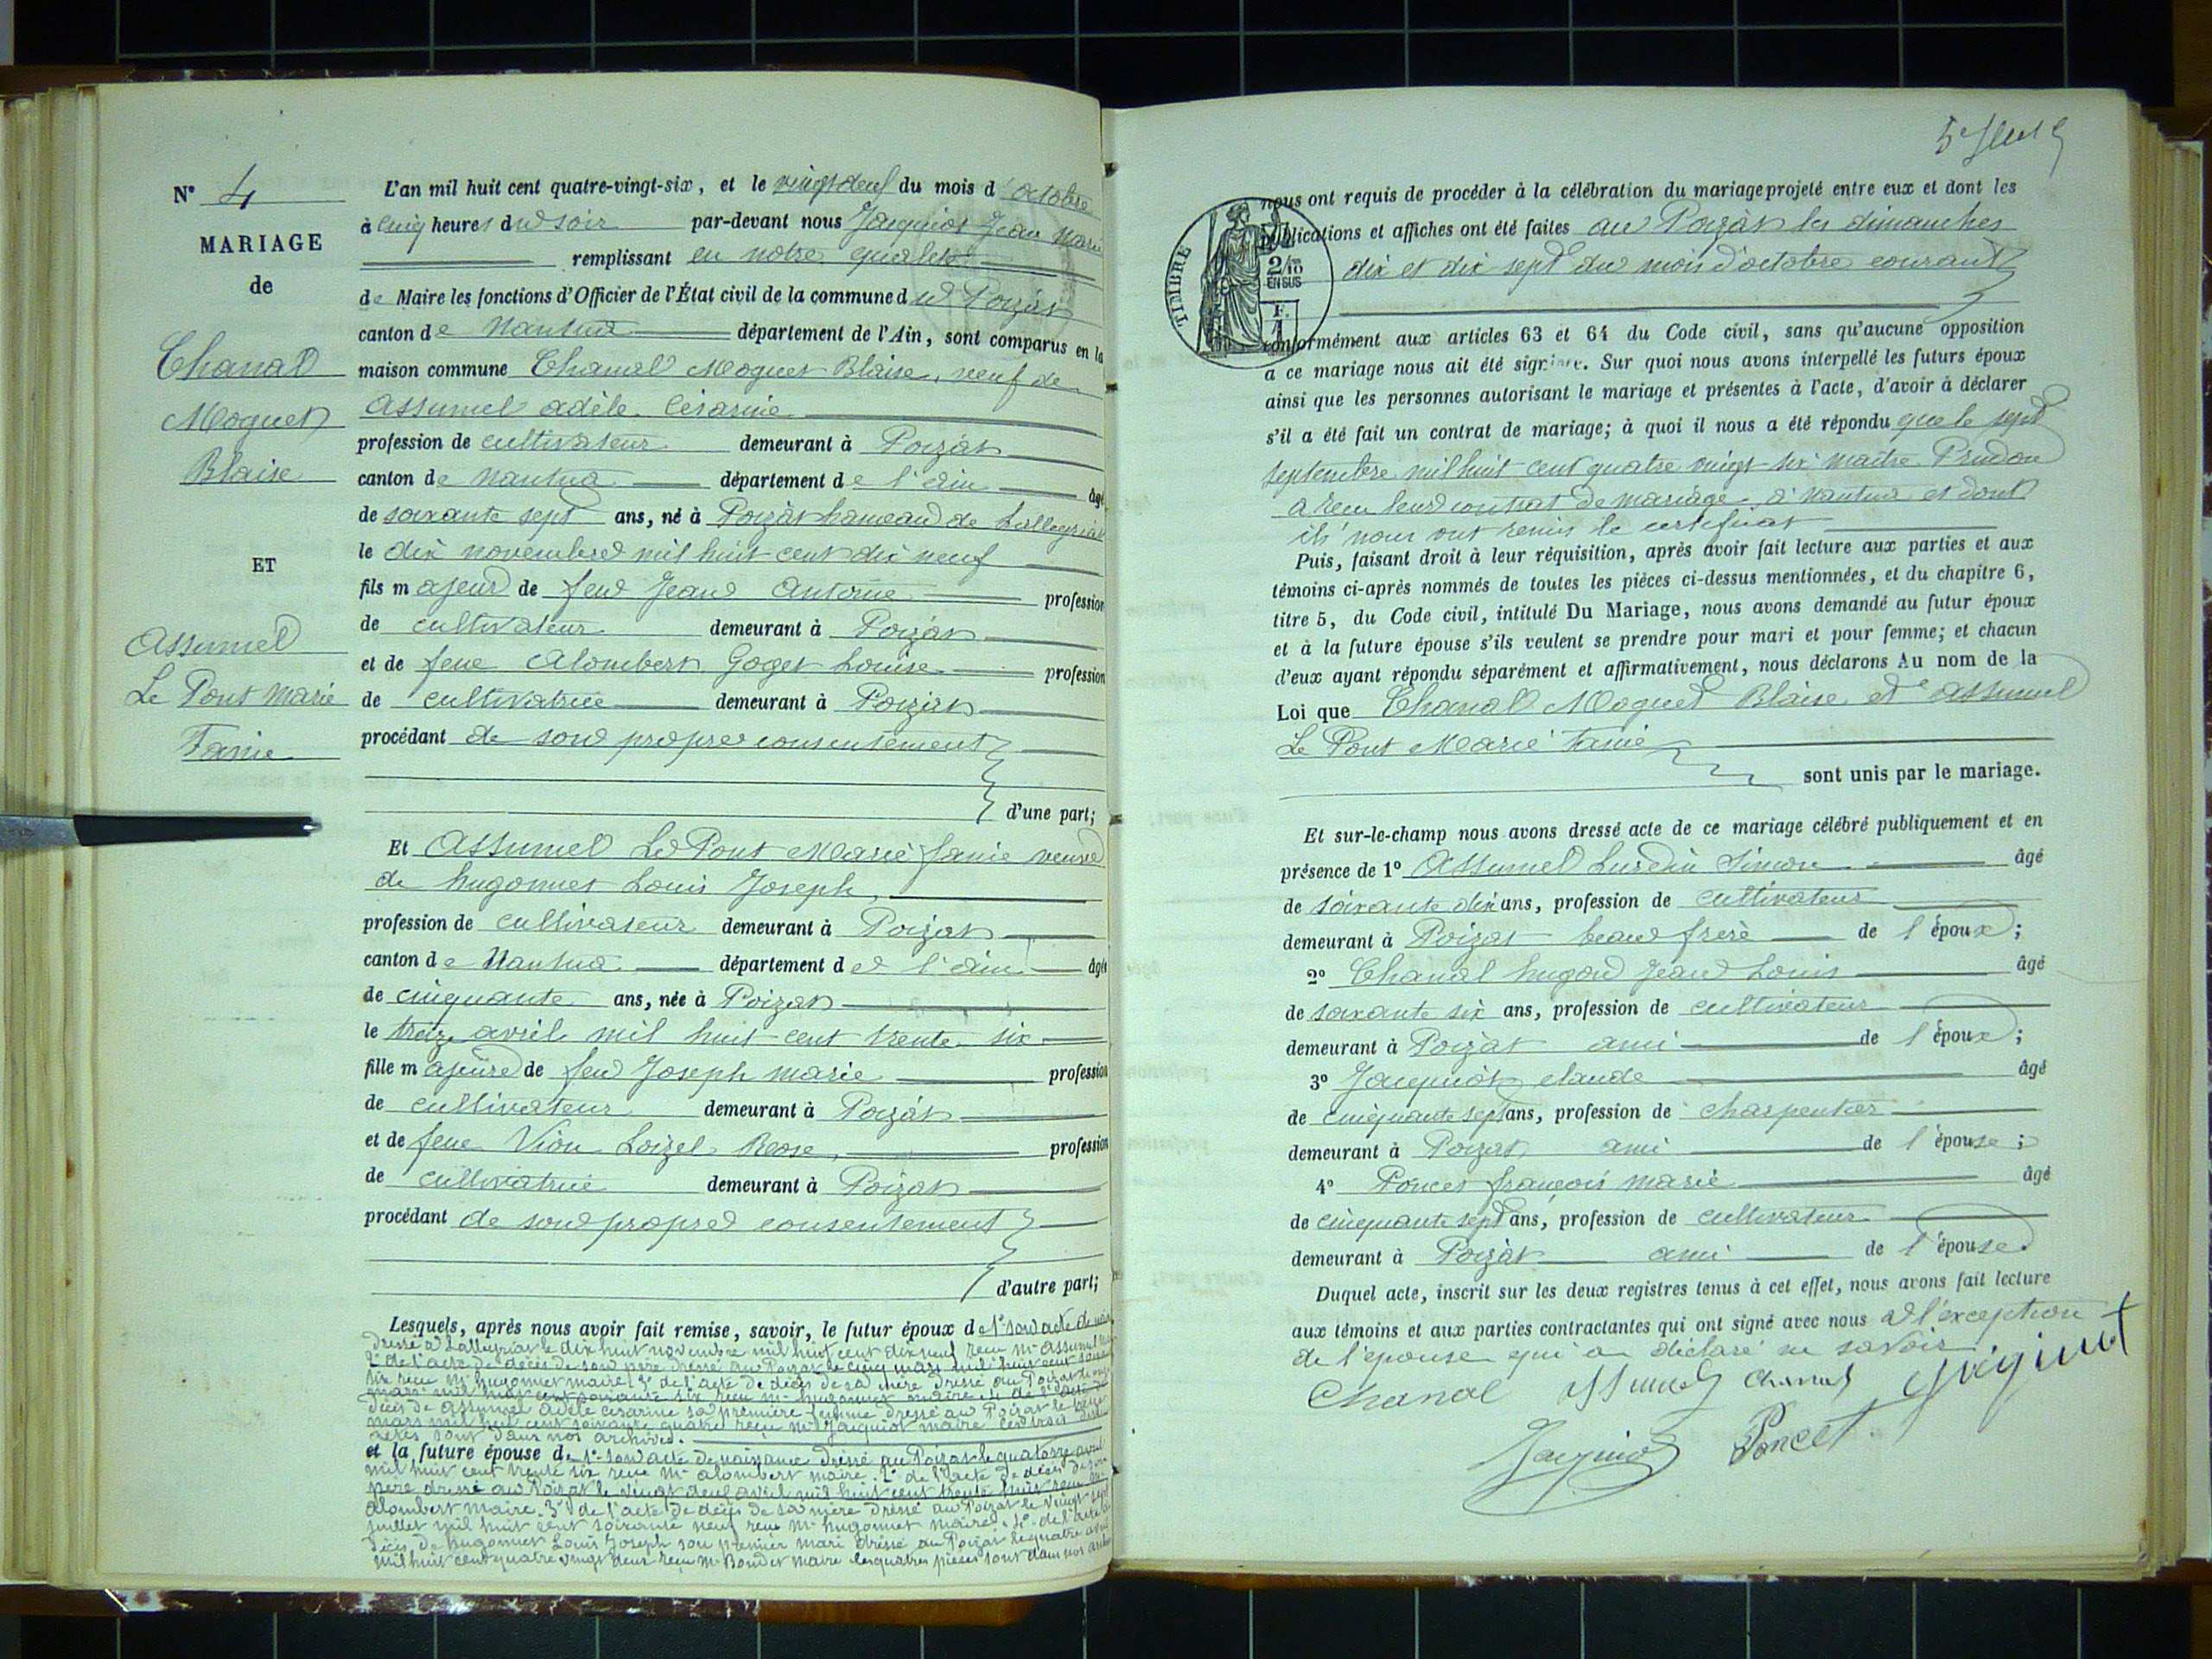 N° 4
MARIAGE
de
Chanal
Moquet
Blaise
ET
Assumel
Le Pont marie
Fanie
L'an mil huit cent quatre-vingt-six, et le vingt deux du mois d'octobre
à cinq heures du soir par-devant nous Jacquiot Jean Marie
remplissant en notre qualité
de Maire les fonctions d'Officier de l'État civil de la commune du Poizat
canton de Nantua département de l'Ain, sont comparus en la
maison commune Chanal Moquet Blaise, veuf de
Assumel adèle Césarine
profession de cultivateur demeurant à Poizat
canton de Nantua département de l'ain âgé
de soixante sept ans, né à Poizat hameau de Lalleyriat
le dix novembre mil huit cent dix neuf
fils majeur de feu Jean Antoine profession
de cultivateur demeurant à Poizat
et de feue Alombert Goget Louise profession
de cultivatrice demeurant à Poizat
procédant de son propre consentement
d'une part;
Et Assumel Le Pont Marie fanie veuve
de hugonnet Louis Joseph,
profession de cultivateur demeurant à Poizat
canton de Nantua département de l'ain âgée
de cinquante ans, née à Poizat
le treize avril mil huit cent trente six
fille majeure de feu Joseph marie profession
de cultivateur demeurant à Poizat
et de feue Vion Loizel Rose, profession
de cultivatrice demeurant à Poizat
procédant de son propre consentement
d'autre part;
Lesquels, après nous avoir fait remise, savoir, le futur époux de 1° son acte de
dressé à Lalleyriat le dix huit novembre mil huit cent dix neuf reçu Mr Assumel
2° de l'acte de décès de son père dressé au Poizat le cinq mars mil huit cent
six reçu Mr hugonnet maire 3° de l'acte de décès de sa mère dressé au Poizat le
mars mil huit cent soixante six reçu Mr hugonnet maire 4° de l'acte de
décès de Assumel adèle césarine sa première femme dressé au Poizat le
mars mil huit cent soixante quatre reçu Mr Jacquiot maire
actes sont dans nos archives.
et la future épouse de 1° son acte de naissance dressé au Poizat le quatorze avril
mil huit cent trente six reçu Mr alombert maire. 2° de l'acte de décès de son
père dressé au Poizat le vingt deux avril mil huit cent trente huit reçu Mr
Alombert maire. 3° de l'acte de décès de sa mère dressé au Poizat le vingt sept
juillet mil huit cent soixante neuf reçu Mr hugonnet maire. 4° de l'acte de
décès de hugonnet Louis Joseph son premier mari dressé au Poizat le quatre avril
mil huit cent quatre vingt deux reçu Mr Bondet maire les quatres pièces sont dans nos archives
TIMBRE
2/10
EN SUS
F.
nous ont requis de procéder à la célébration du mariage projeté entre eux et dont les
publications et affiches ont été faites au Poizat les dimanches
dix et dix sept du mois d'octobre courant
conformément aux articles 63 et 64 du Code civil, sans qu'aucune opposition
à ce mariage nous ait été signifiée. Sur quoi nous avons interpellé les futurs époux
ainsi que les personnes autorisant le mariage et présentes à l'acte, d'avoir à déclarer
s'il a été fait un contrat de mariage; à quoi il nous a été répondu que le sept
septembre mil huit cent quatre vingt six maître Prudon
a reçu leur contrat de mariage à Nantua et dont
ils nous ont remis le certificat
Puis, faisant droit à leur réquisition, après avoir fait lecture aux parties et aux
témoins ci-après nommés de toutes les pièces ci-dessus mentionnées, et du chapitre 6,
titre 5, du Code civil, intitulé Du Mariage, nous avons demandé au futur époux
et à la future épouse s'ils veulent se prendre pour mari et pour femme; et chacun
d'eux ayant répondu séparément et affirmativement, nous déclarons Au nom de la
Loi que Chanal Moquet Blaise et Assumel
Le Pont Marie Fanie
sont unis par le mariage.
Et sur-le-champ nous avons dressé acte de ce mariage célébré publiquement et en
présence de 1° Assumel Lurdin Simon âgé
de soixante dix ans, profession de cultivateur
demeurant à Poizat beau frere de l'époux;
2° Chanal hugon Jean Louis âgé
de soixante six ans, profession de cultivateur
demeurant à Poizat ami de l'époux;
3° Jacquiot claude âgé
de cinquante sept ans, profession de charpentier
demeurant à Poizat ami de l'épouse;
4° Poncet françois marie âgé
de cinquante sept ans, profession de cultivateur
demeurant à Poizat ami de l'épouse
Duquel acte, inscrit sur les deux registres tenus à cet effet, nous avons fait lecture
aux témoins et aux parties contractantes qui ont signé avec nous à l'exception
de l'épouse qui a déclaré ne savoir
Chanal Assumel Chanal
Jacquiot Poncet